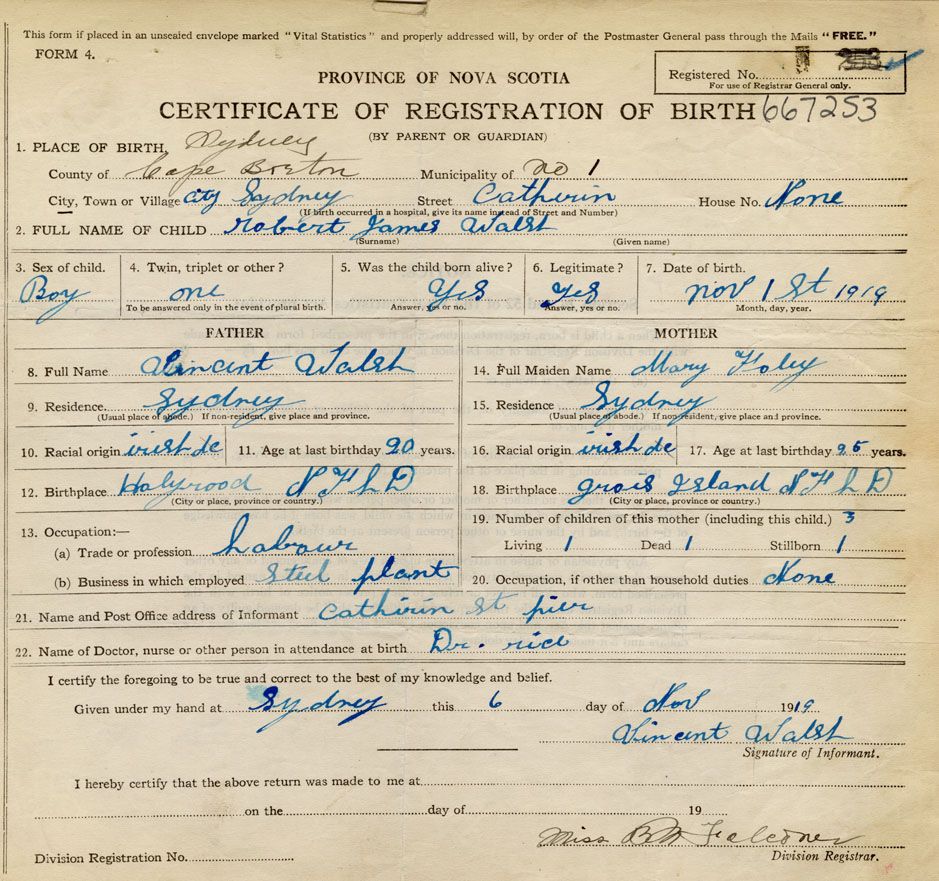 This form if placed in an unsealed envelope marked "Vital Statistics" and properly addressed will, by order of the Postmaster General pass through the Mails "FREE."
FORM 4.
PROVINCE OF NOVA SCOTIA
Registered No.
For use of Registrar General only.
CERTIFICATE OF REGISTRATION OF BIRTH 667253
(BY PARENT OR GUARDIAN)
1. PLACE OF BIRTH, Sydney
County of Cape Breton Municipality of no 1
City, Town or Village city Sydney Street Catherin House No. None
(If birth occurred in a hospital, give its name instead of Street and Number)
2. FULL NAME OF CHILD Robert James Walsh
(Surname) (Given name)
3. Sex of child. 4. Twin, triplet or other? 5. Was the child born alive? 6. Legitimate? 7. Date of birth.
Boy one Yes Yes nov 1 St 1919
To be answered only in the event of plural birth. Answer, yes or no. Answer, yes or no. Month, day, year.
FATHER MOTHER
8. Full Name Vincent Walsh 14. Full Maiden Name Mary Foley
9. Residence. Sydney 15. Residence Sydney
(Usual place of abode.) If non-resident, give place and province. (Usual place of abode.) If non-resident, give place and province.
10. Racial origin irish de 11. Age at last birthday 20 years. 16. Racial origin irish de 17. Age at last birthday 25 years.
12. Birthplace Holyrood NFLD 18. Birthplace grois Island NFLD
(City or place, province or country.) (City or place, province or country.)
13. Occupation:— 19. Number of children of this mother (including this child.) 3
(a) Trade or profession. Labour Living 1 Dead 1 Stillborn 1
(b) Business in which employed Steel plant 20. Occupation, if other than household duties None
21. Name and Post Office address of Informant Cathirin St pier
22. Name of Doctor, nurse or other person in attendance at birth Dr. rice
I certify the foregoing to be true and correct to the best of my knowledge and belief.
Given under my hand at Sydney this 6 day of Nov 1919
Vincent Walsh
Signature of Informant.
I hereby certify that the above return was made to me at
on the day of 19
Miss B M Falconer
Division Registration No. Division Registrar.